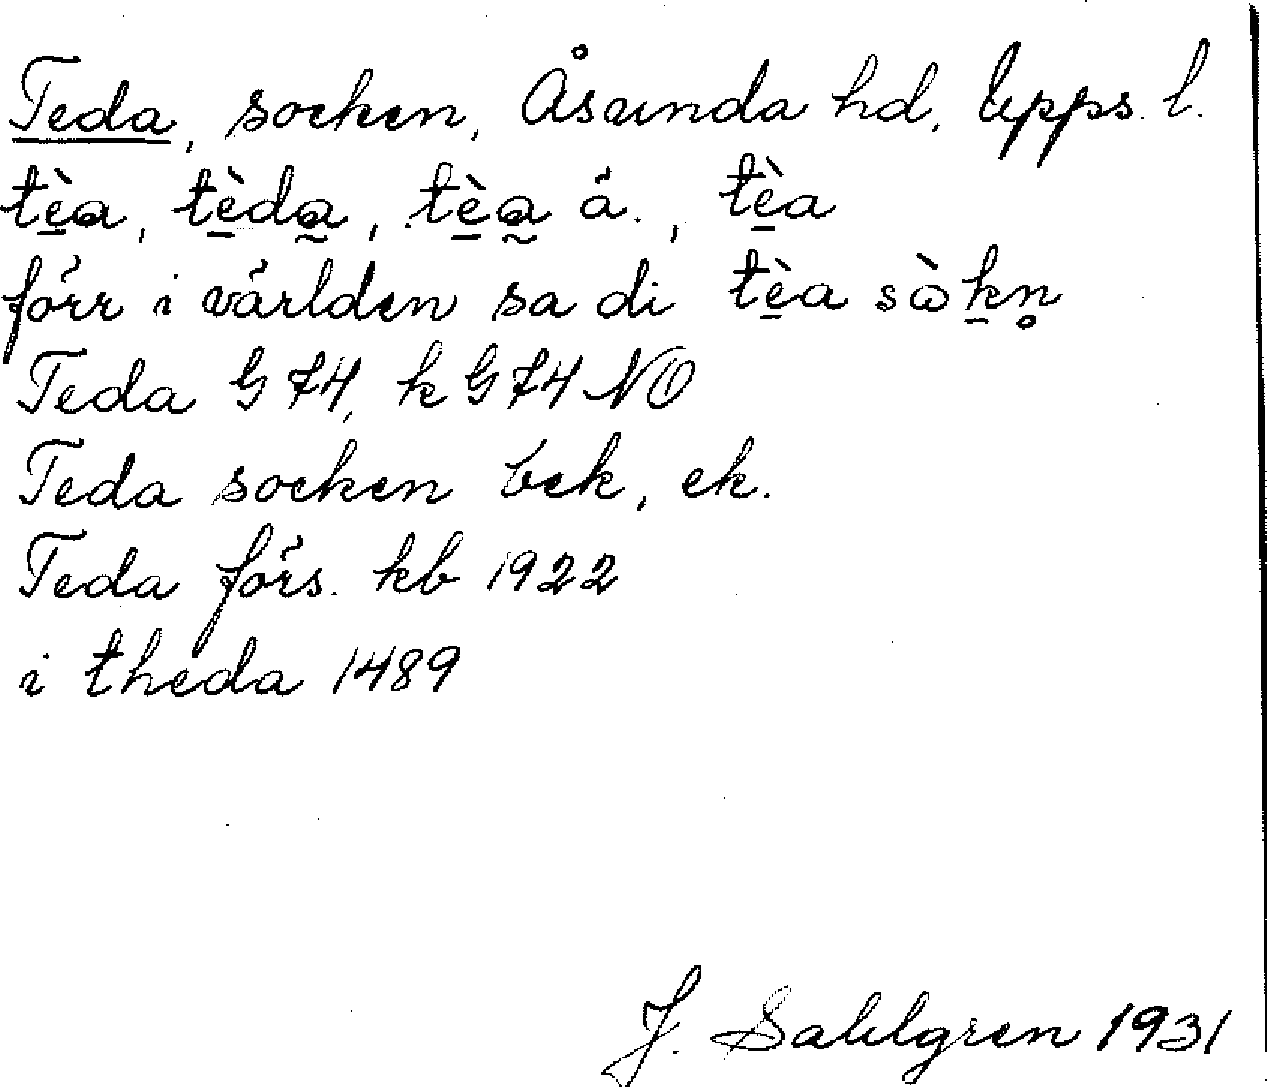 Teda, socken, Åsunda hd, Upps. l.
tè̠a, tè̠da̰, tè̠a̰ ä., tè̠a
förr i världen sa di tè̠a sɷ̀k̠n̥
Teda G 74, k G 74 NO
Teda socken bek, ek.
Teda förs. kb 1922
i theda 1489
J. Sahlgren 1931